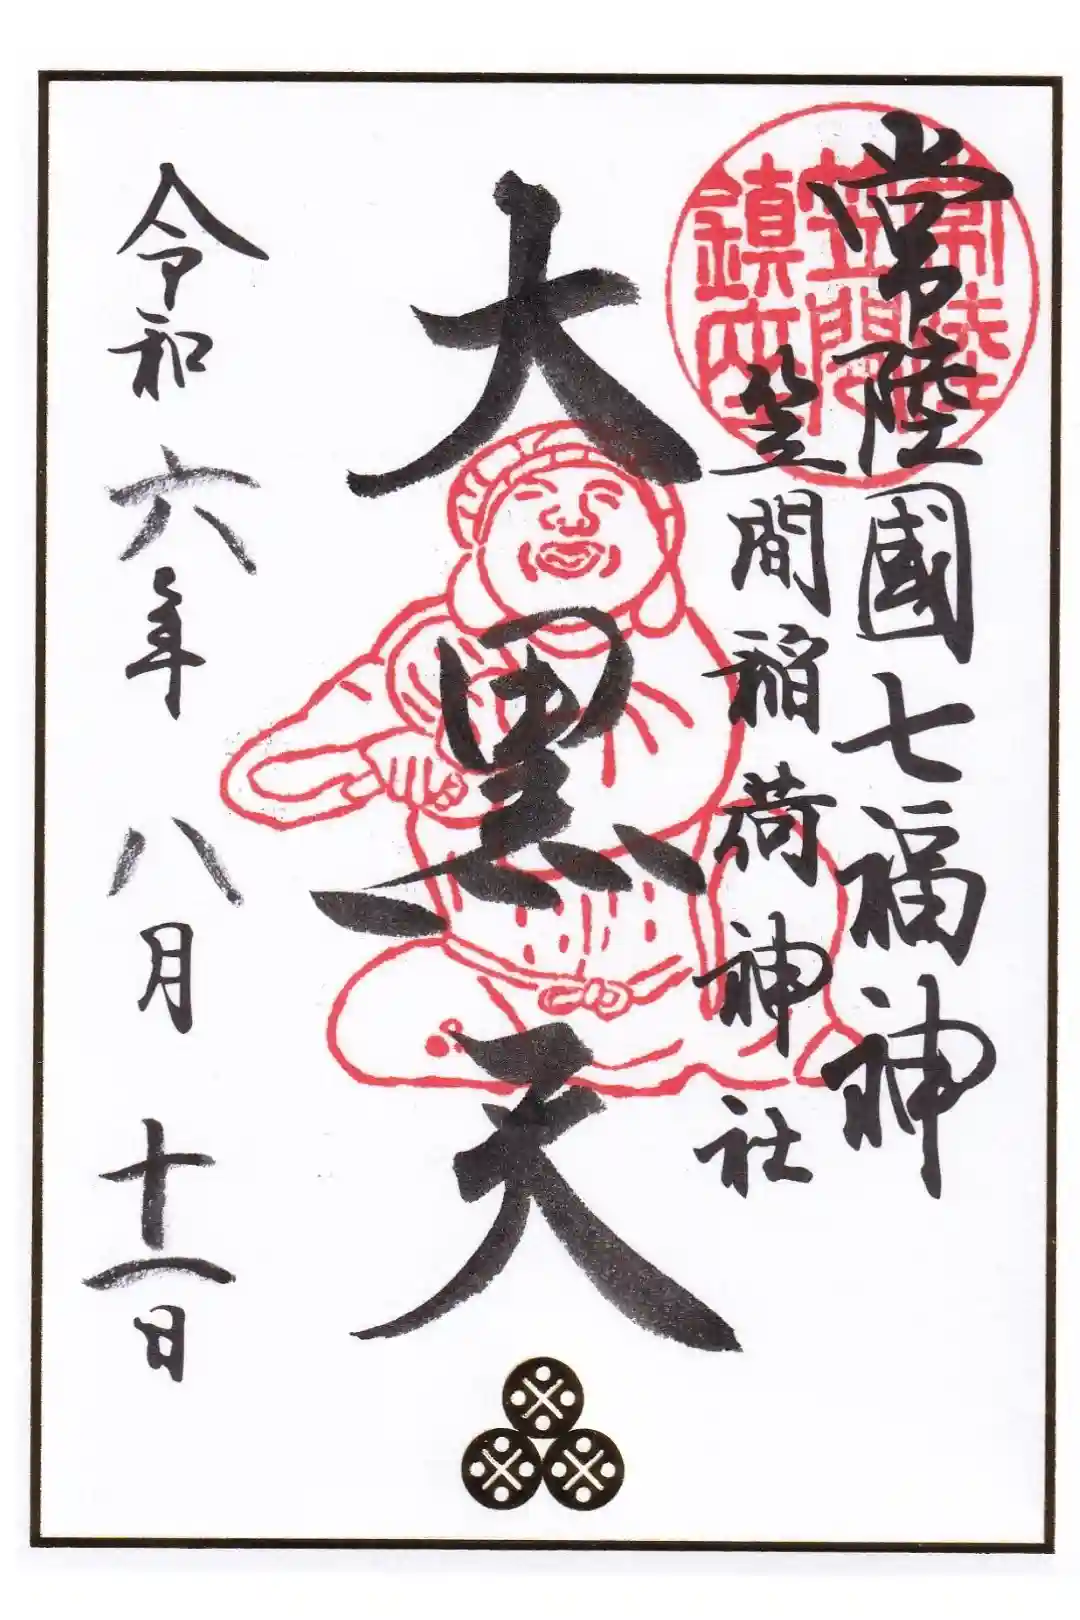 常陸國七福神
笠間稲荷神社
大黒天
令和六年八月十一日
常陸
笠間
鎮座